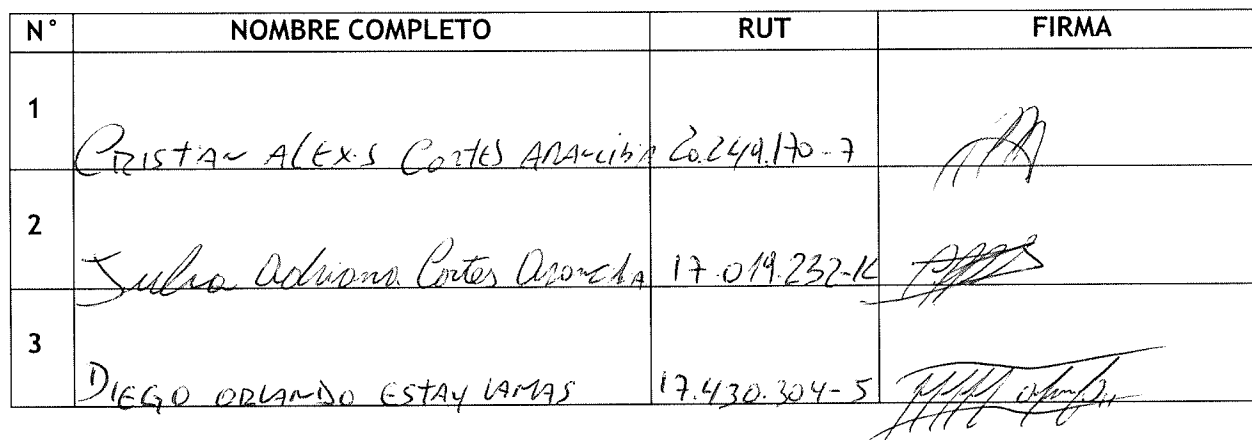 N° NOMBRE COMPLETO RUT FIRMA
1 CRISTIAN ALEXIS CORTES ARANCIBIA 20.249.170-7
2 Julia Adriana Cortes 17.019.232-K
3 DIEGO ORLANDO ESTAY LAMAS 17.430.304-5